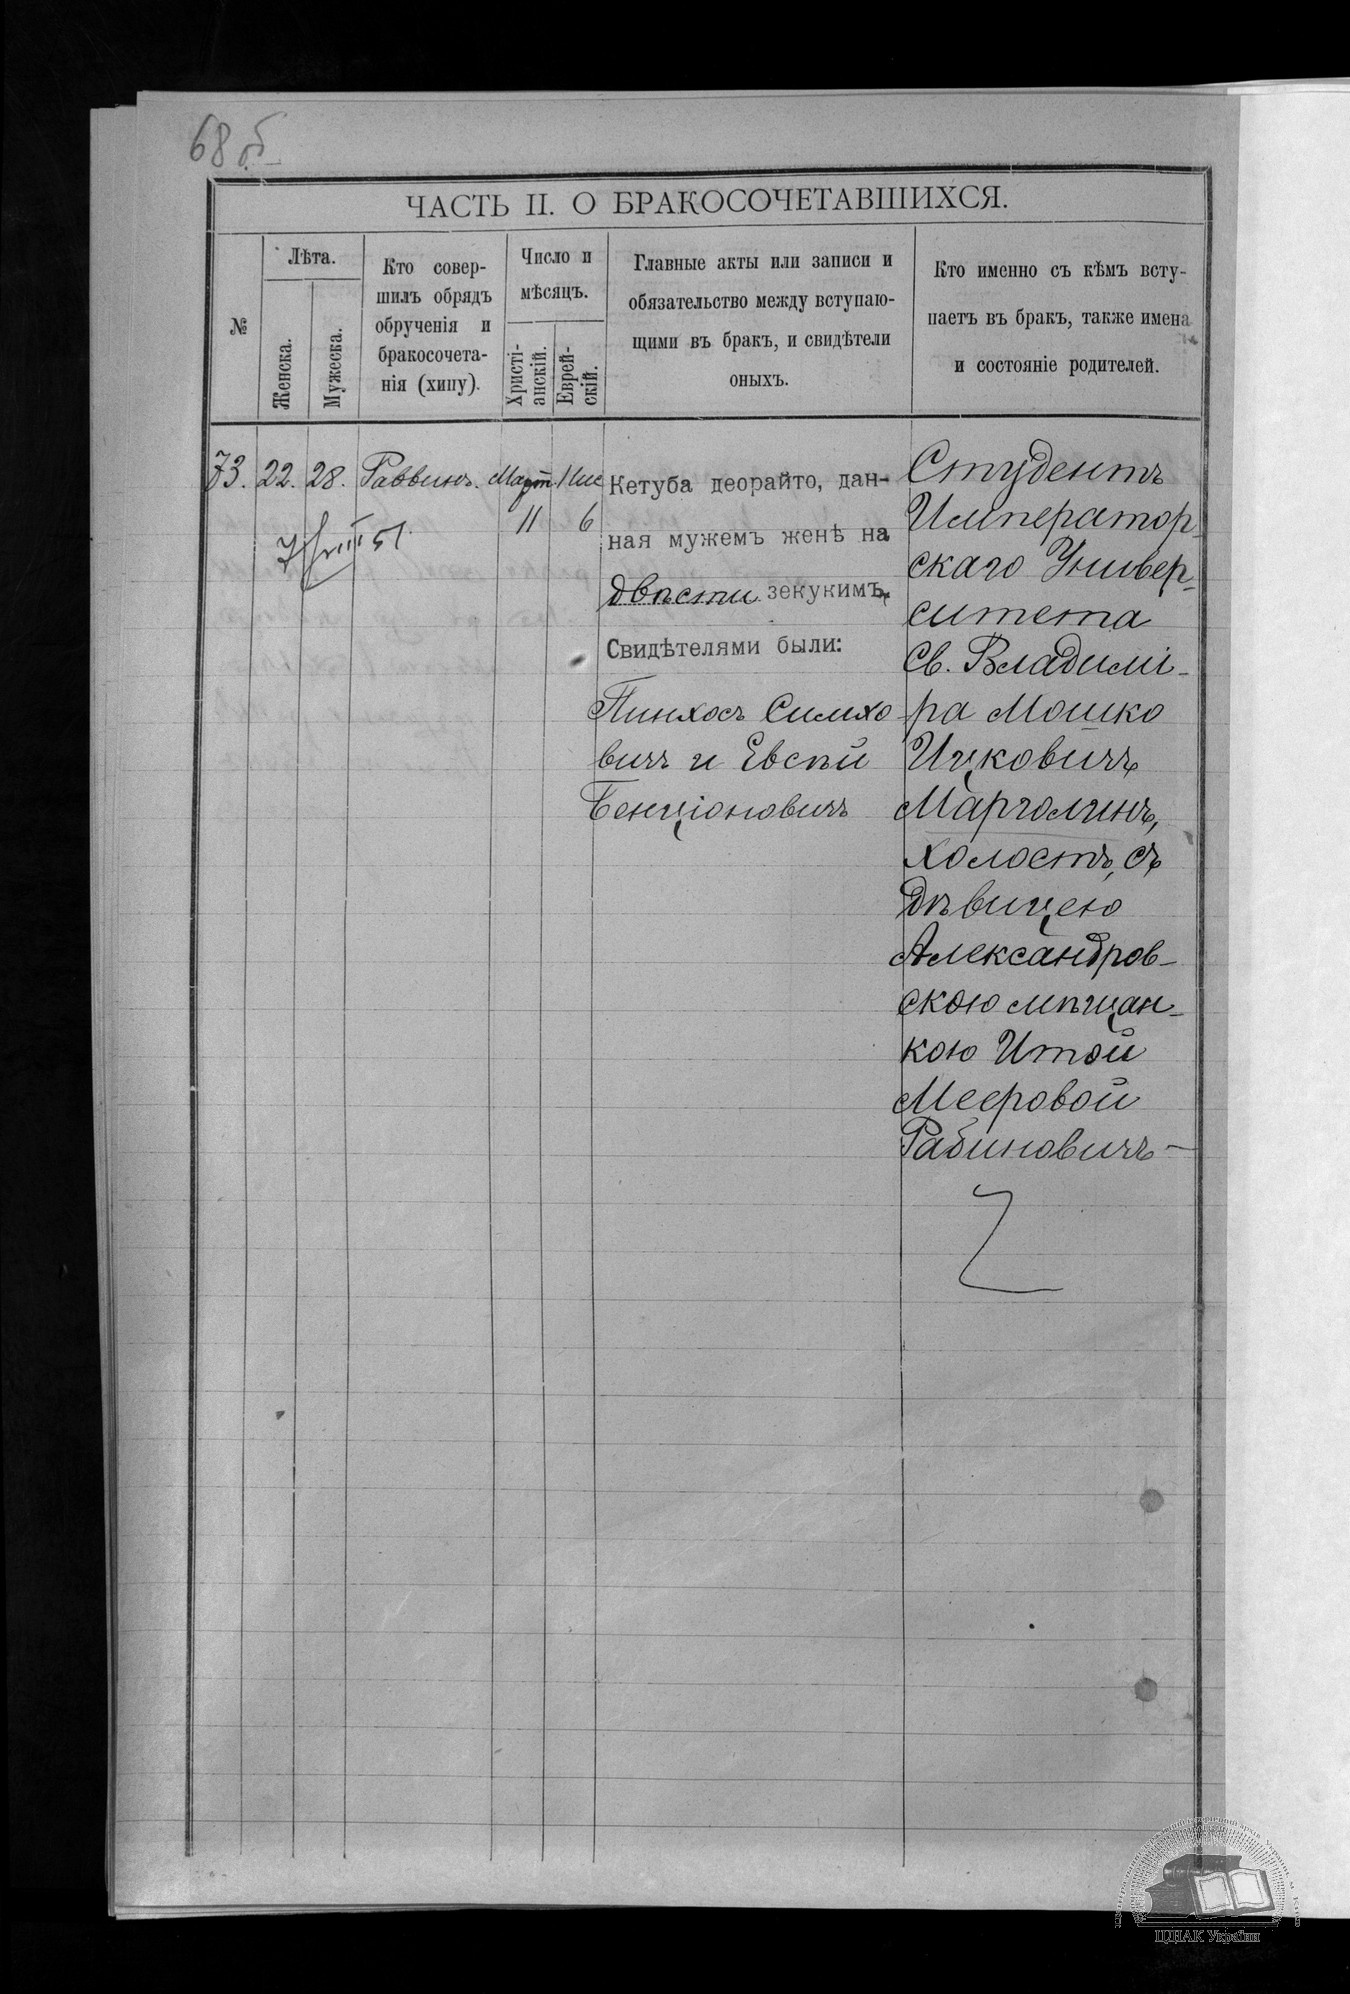 68 об
ЧАСТЬ II. О БРАКОСОЧЕТАВШИХСЯ.
№
Лѣта.
Женска.
Мужеска.
Кто совер-
шилъ обрядъ
обрученія и
бракосочета-
нія (хипу).
Число и
мѣсяцъ.
Христі-
анскій.
Еврей-
скій.
Главные акты или записи и
обязательство между вступаю-
щими въ бракъ, и свидѣтели
оныхъ.
Кто именно съ кѣмъ всту-
паетъ въ бракъ, также имена
и состояніе родителей.
73.
22.
28.
Раввинъ.
Март.
11
Нис
6
Кетуба деорайто, дан-
ная мужемъ женѣ на
двѣсти зекукимъ
Свидѣтелями были:
Пинхосъ Симхо-
вичъ и Евсѣй
Бенціоновичъ
Студентъ
Император-
скаго Универ-
ситета
Св. Владимі-
ра Мошко
Ицковичъ
Марголинъ,
холостъ, съ
дѣвицею
Александров-
скою мѣщан-
кою Итой
Мееровой
Рабиновичъ —
ЦДІАК України